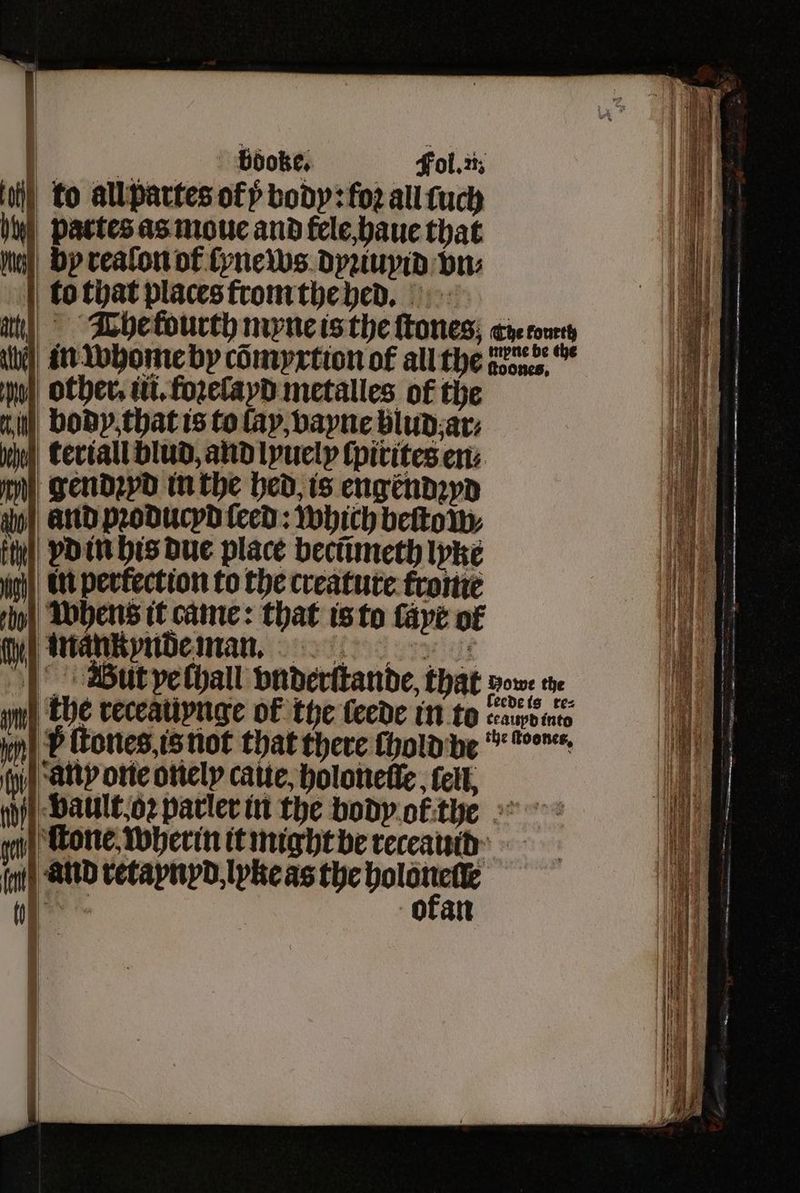 booke. Fol.
to all partes of þͤ body: for all ſuch
partes as moue and fele, haue that
by reaſon of ſynews. dyriuyd vn-
to that places from the hed.
The fourth myne is the ſtones,
in whome by cōmyxtion of all the
other. iii. foreſayd metalles of the
body, that is to ſay, vayne blud, ar-
teriall blud, and lyuely ſpirites en-
gendryd in the hed, is engendryd
and producyd ſeed: which beſtow-
yd in his due place becūmeth lyke
in perfection to the creature frome
whens it came: that is to ſaye of
mankynde man.
But ye ſhall vnderſtande, that
the receauynge of the ſeede in to
þͤ ſtones, is not that there ſhold be
any one onely caue, holoneſſe, ſell,
vault, or parler in the body of the
ſtone, wherin it might be receauid
and retaynyd, lyke as the holoneſſe
of an
The fourth
myne be the
ſtoones,
Howe the
ſeede is re-
ceauyd into
the ſtoones,